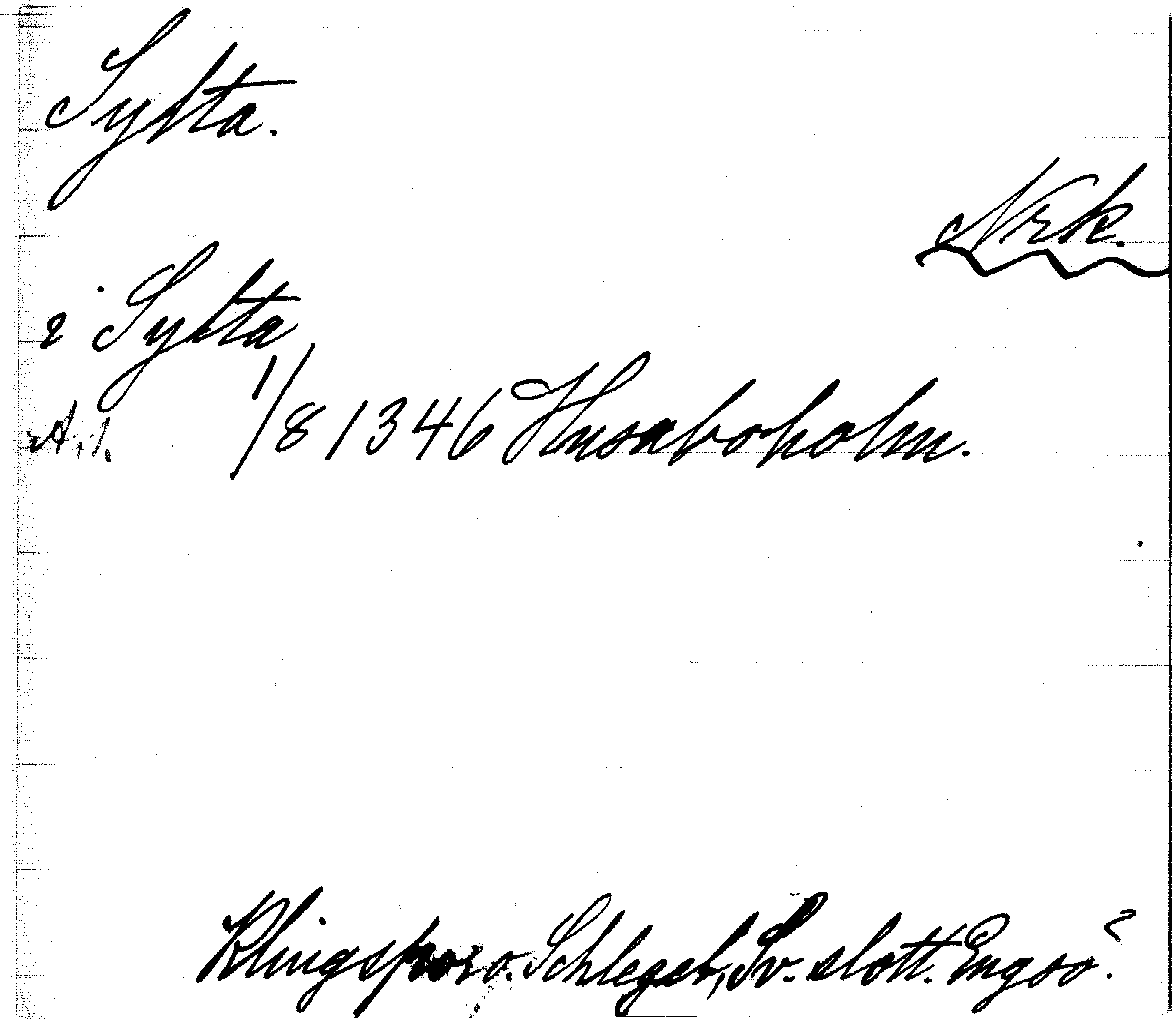 Sylta.
Nrk.
i Sylta
1/8 1346 Husaboholm.
Klingspor o. Schlegel, Sv. slott. Engsö.